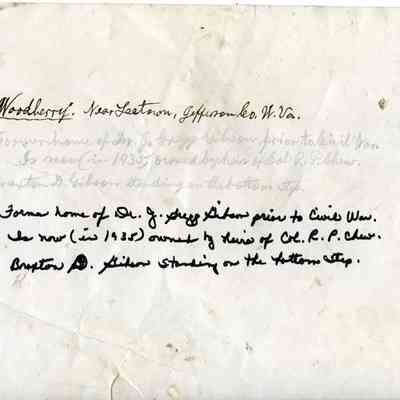 Woodberry. Near Leetown, Jefferson Co. W. Va.
Former home of Dr. J. Gregg Gibson prior to Civil War.
Is now (in 1935) owned by heirs of Col. R. P. Chew.
Braxton D. Gibson standing on the bottom step.
Forme home of Dr. J. Gregg Gibson prior to Civil War.
Is now (in 1935) owned by heirs of Col. R. P. Chew.
Braxton D. Gibson standing on the bottom step.